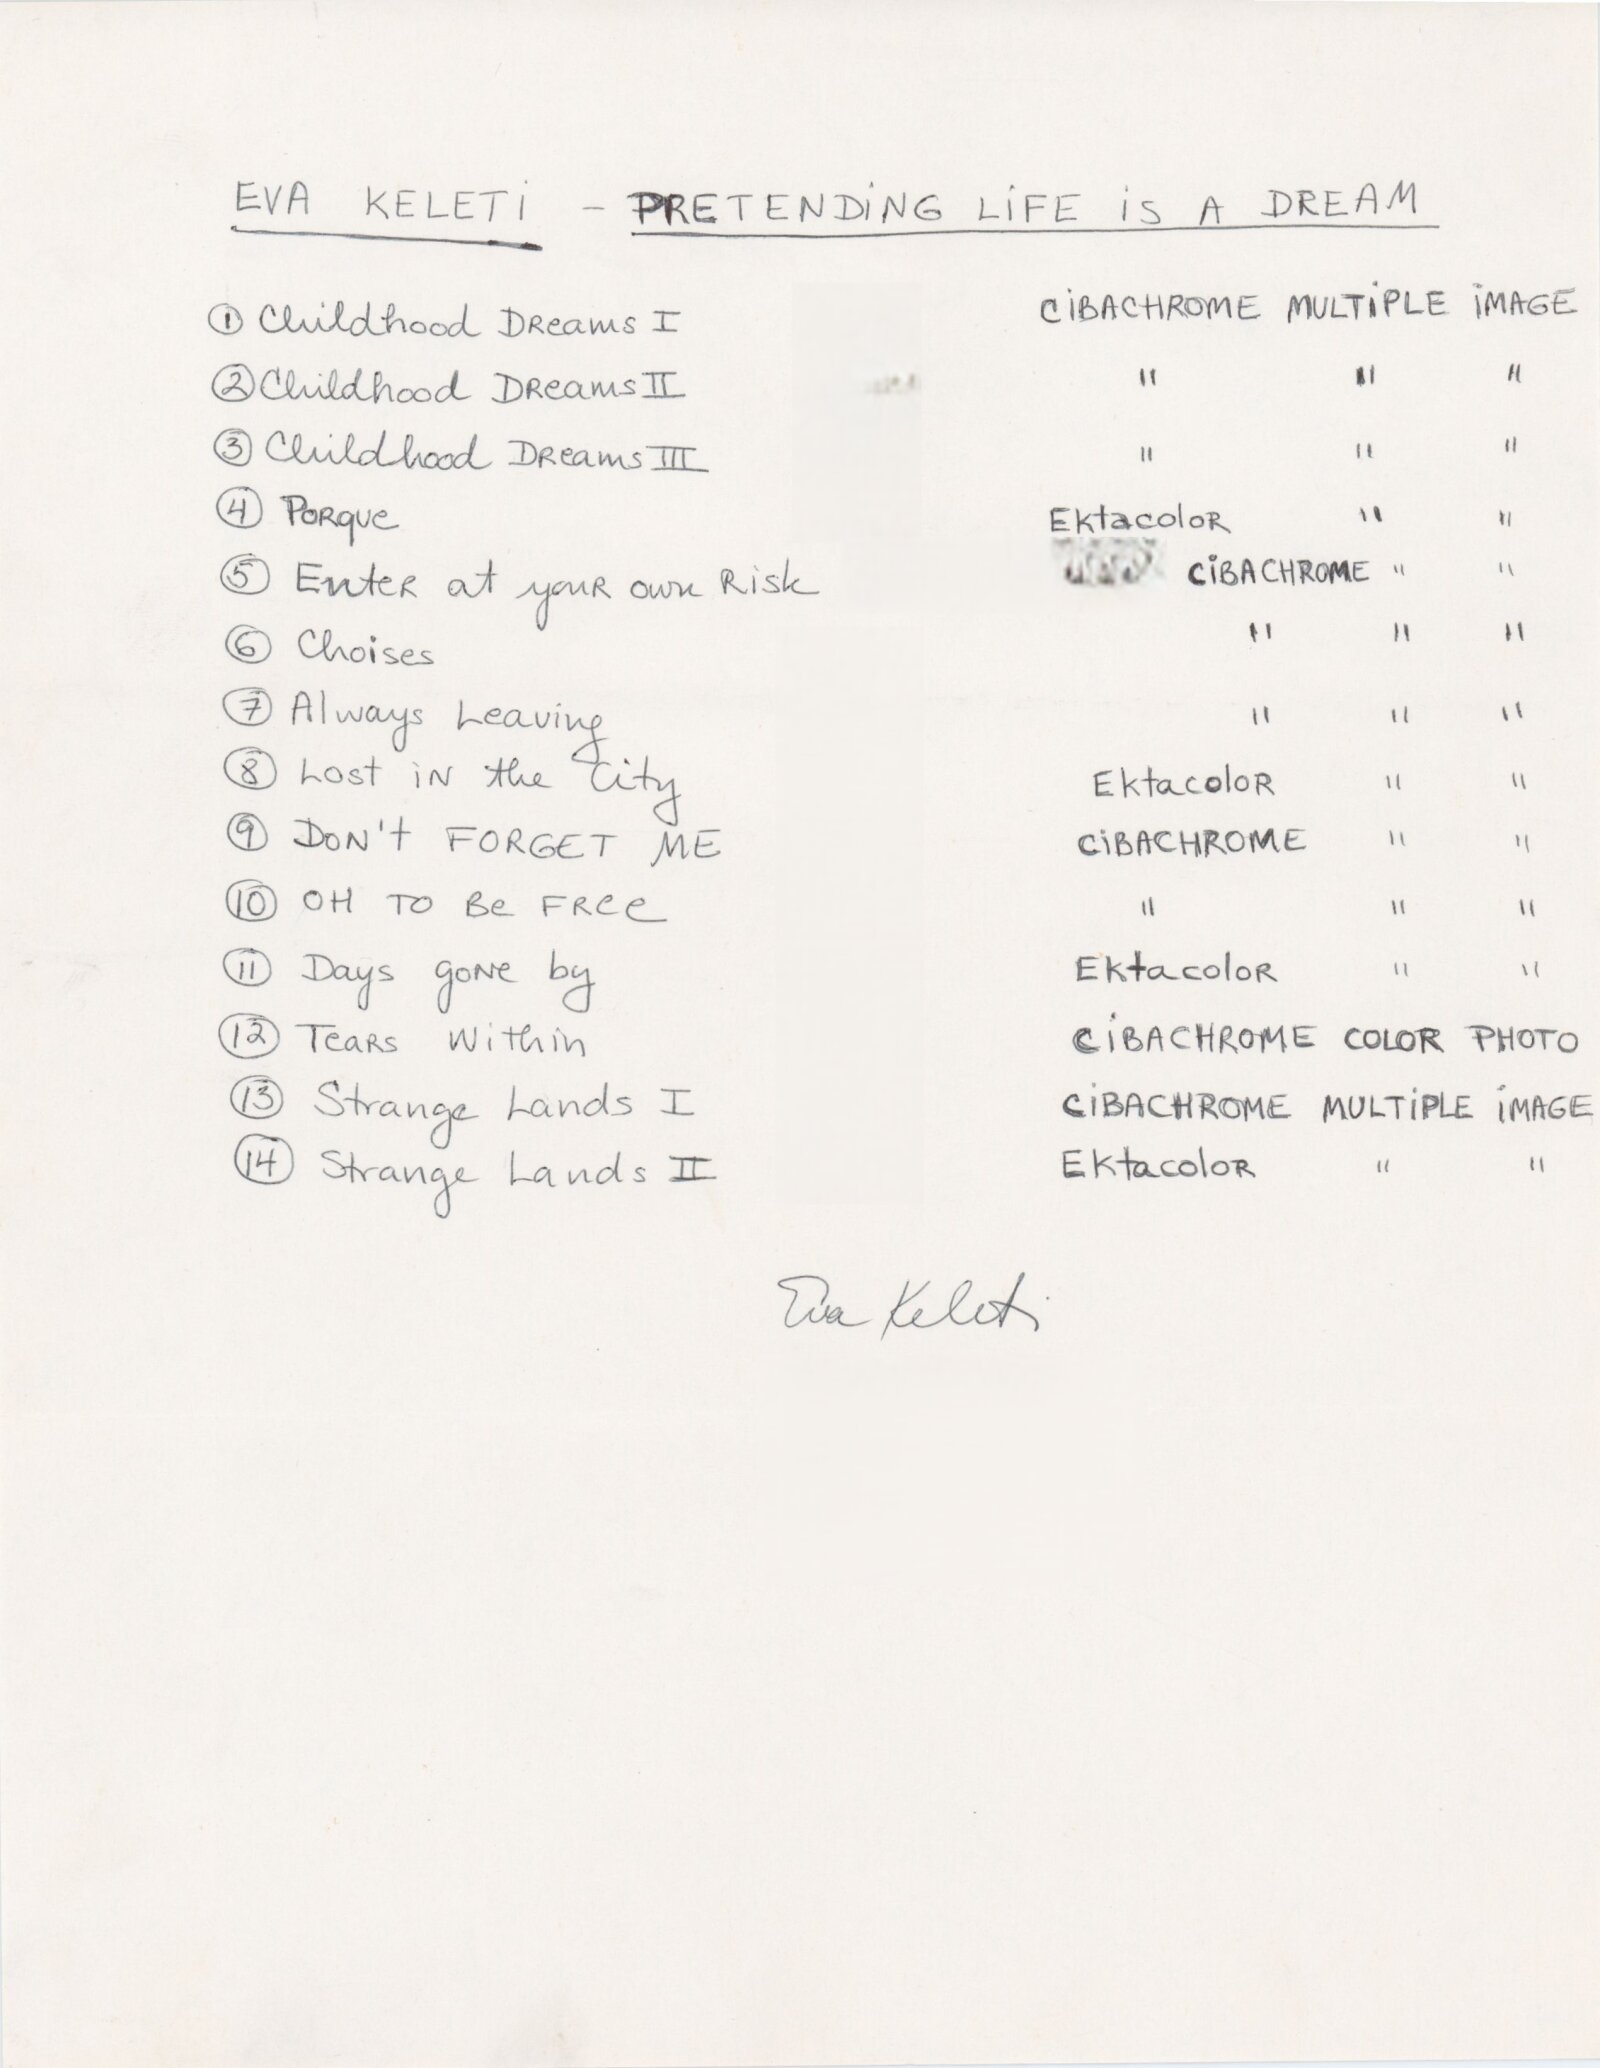 EVA KELETI - PRETENDING LIFE IS A DREAM
① Childhood Dreams I CIBACHROME MULTIPLE IMAGE
② Childhood Dreams II " " "
③ Childhood Dreams III " " "
④ Porque Ektacolor " "
⑤ Enter at your own Risk CIBACHROME " "
⑥ Choises " " "
⑦ Always Leaving " " "
⑧ Lost in the City Ektacolor " "
⑨ DON'T FORGET ME CIBACHROME " "
⑩ OH TO Be FRee " " "
⑪ Days gone by Ektacolor " "
⑫ Tears Within CIBACHROME COLOR PHOTO
⑬ Strange Lands I CIBACHROME MULTIPLE IMAGE
⑭ Strange Lands II Ektacolor " "
Eva Keleti